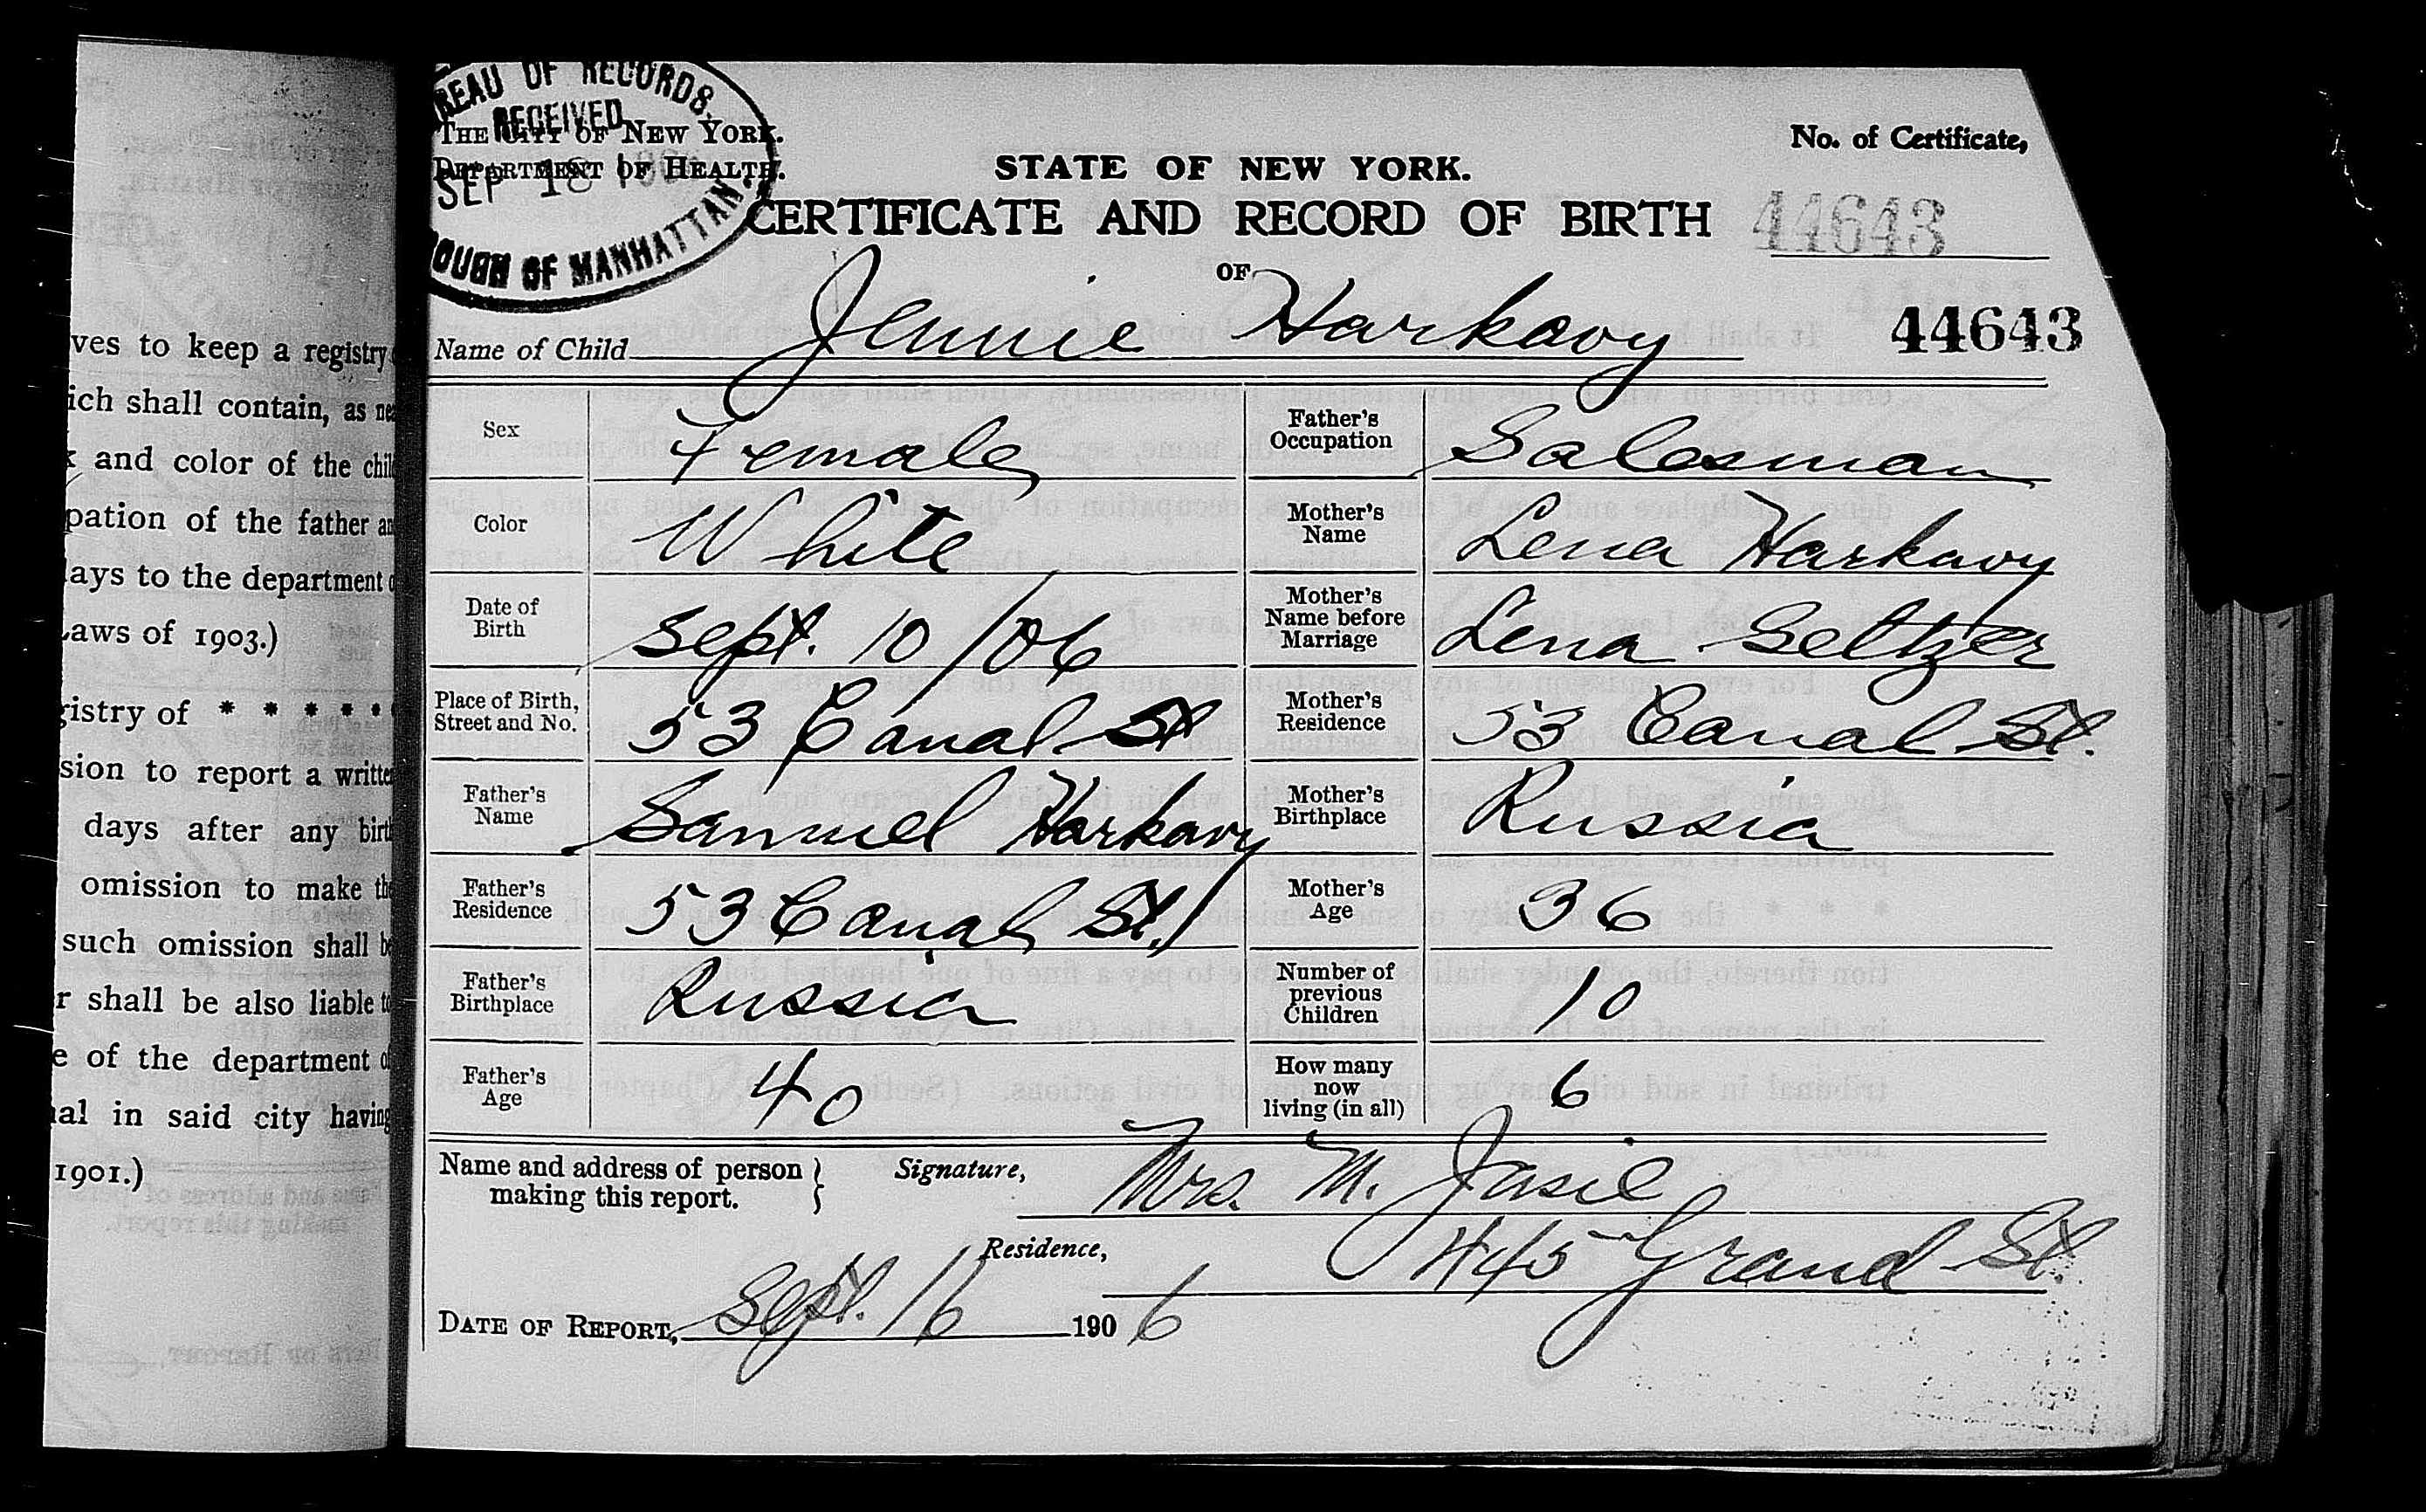 ves to keep a registry
ich shall contain, as
and color of the
pation of the father
ays to the department
aws of 1903.)
istry of * * * * * *
sion to report a
days after any
omission to make
such omission shall
r shall be also liable
e of the department
al in said city having
1901.)
REAU OF RECORDS.
RECEIVED
SEP 18
OUGH OF MANHATTAN.
THE CITY OF NEW YORK.
DEPARTMENT OF HEALTH.
STATE OF NEW YORK.
No. of Certificate,
CERTIFICATE AND RECORD OF BIRTH
44643
OF
44643
Name of Child Jennie Harkavy
Sex Female
Father's Occupation Salesman
Color White
Mother's Name Lena Harkavy
Date of Birth Sept. 10/06
Mother's Name before Marriage Lena Seltzer
Place of Birth, Street and No. 53 Canal St
Mother's Residence 53 Canal St.
Father's Name Samuel Harkavy
Mother's Birthplace Russia
Father's Residence 53 Canal St.
Mother's Age 36
Father's Birthplace Russia
Number of previous Children 10
Father's Age 40
How many now living (in all) 6
Name and address of person making this report. } Signature, Mrs. M. Jasie
Residence, 445 Grand St.
DATE OF REPORT, Sept. 16 1906